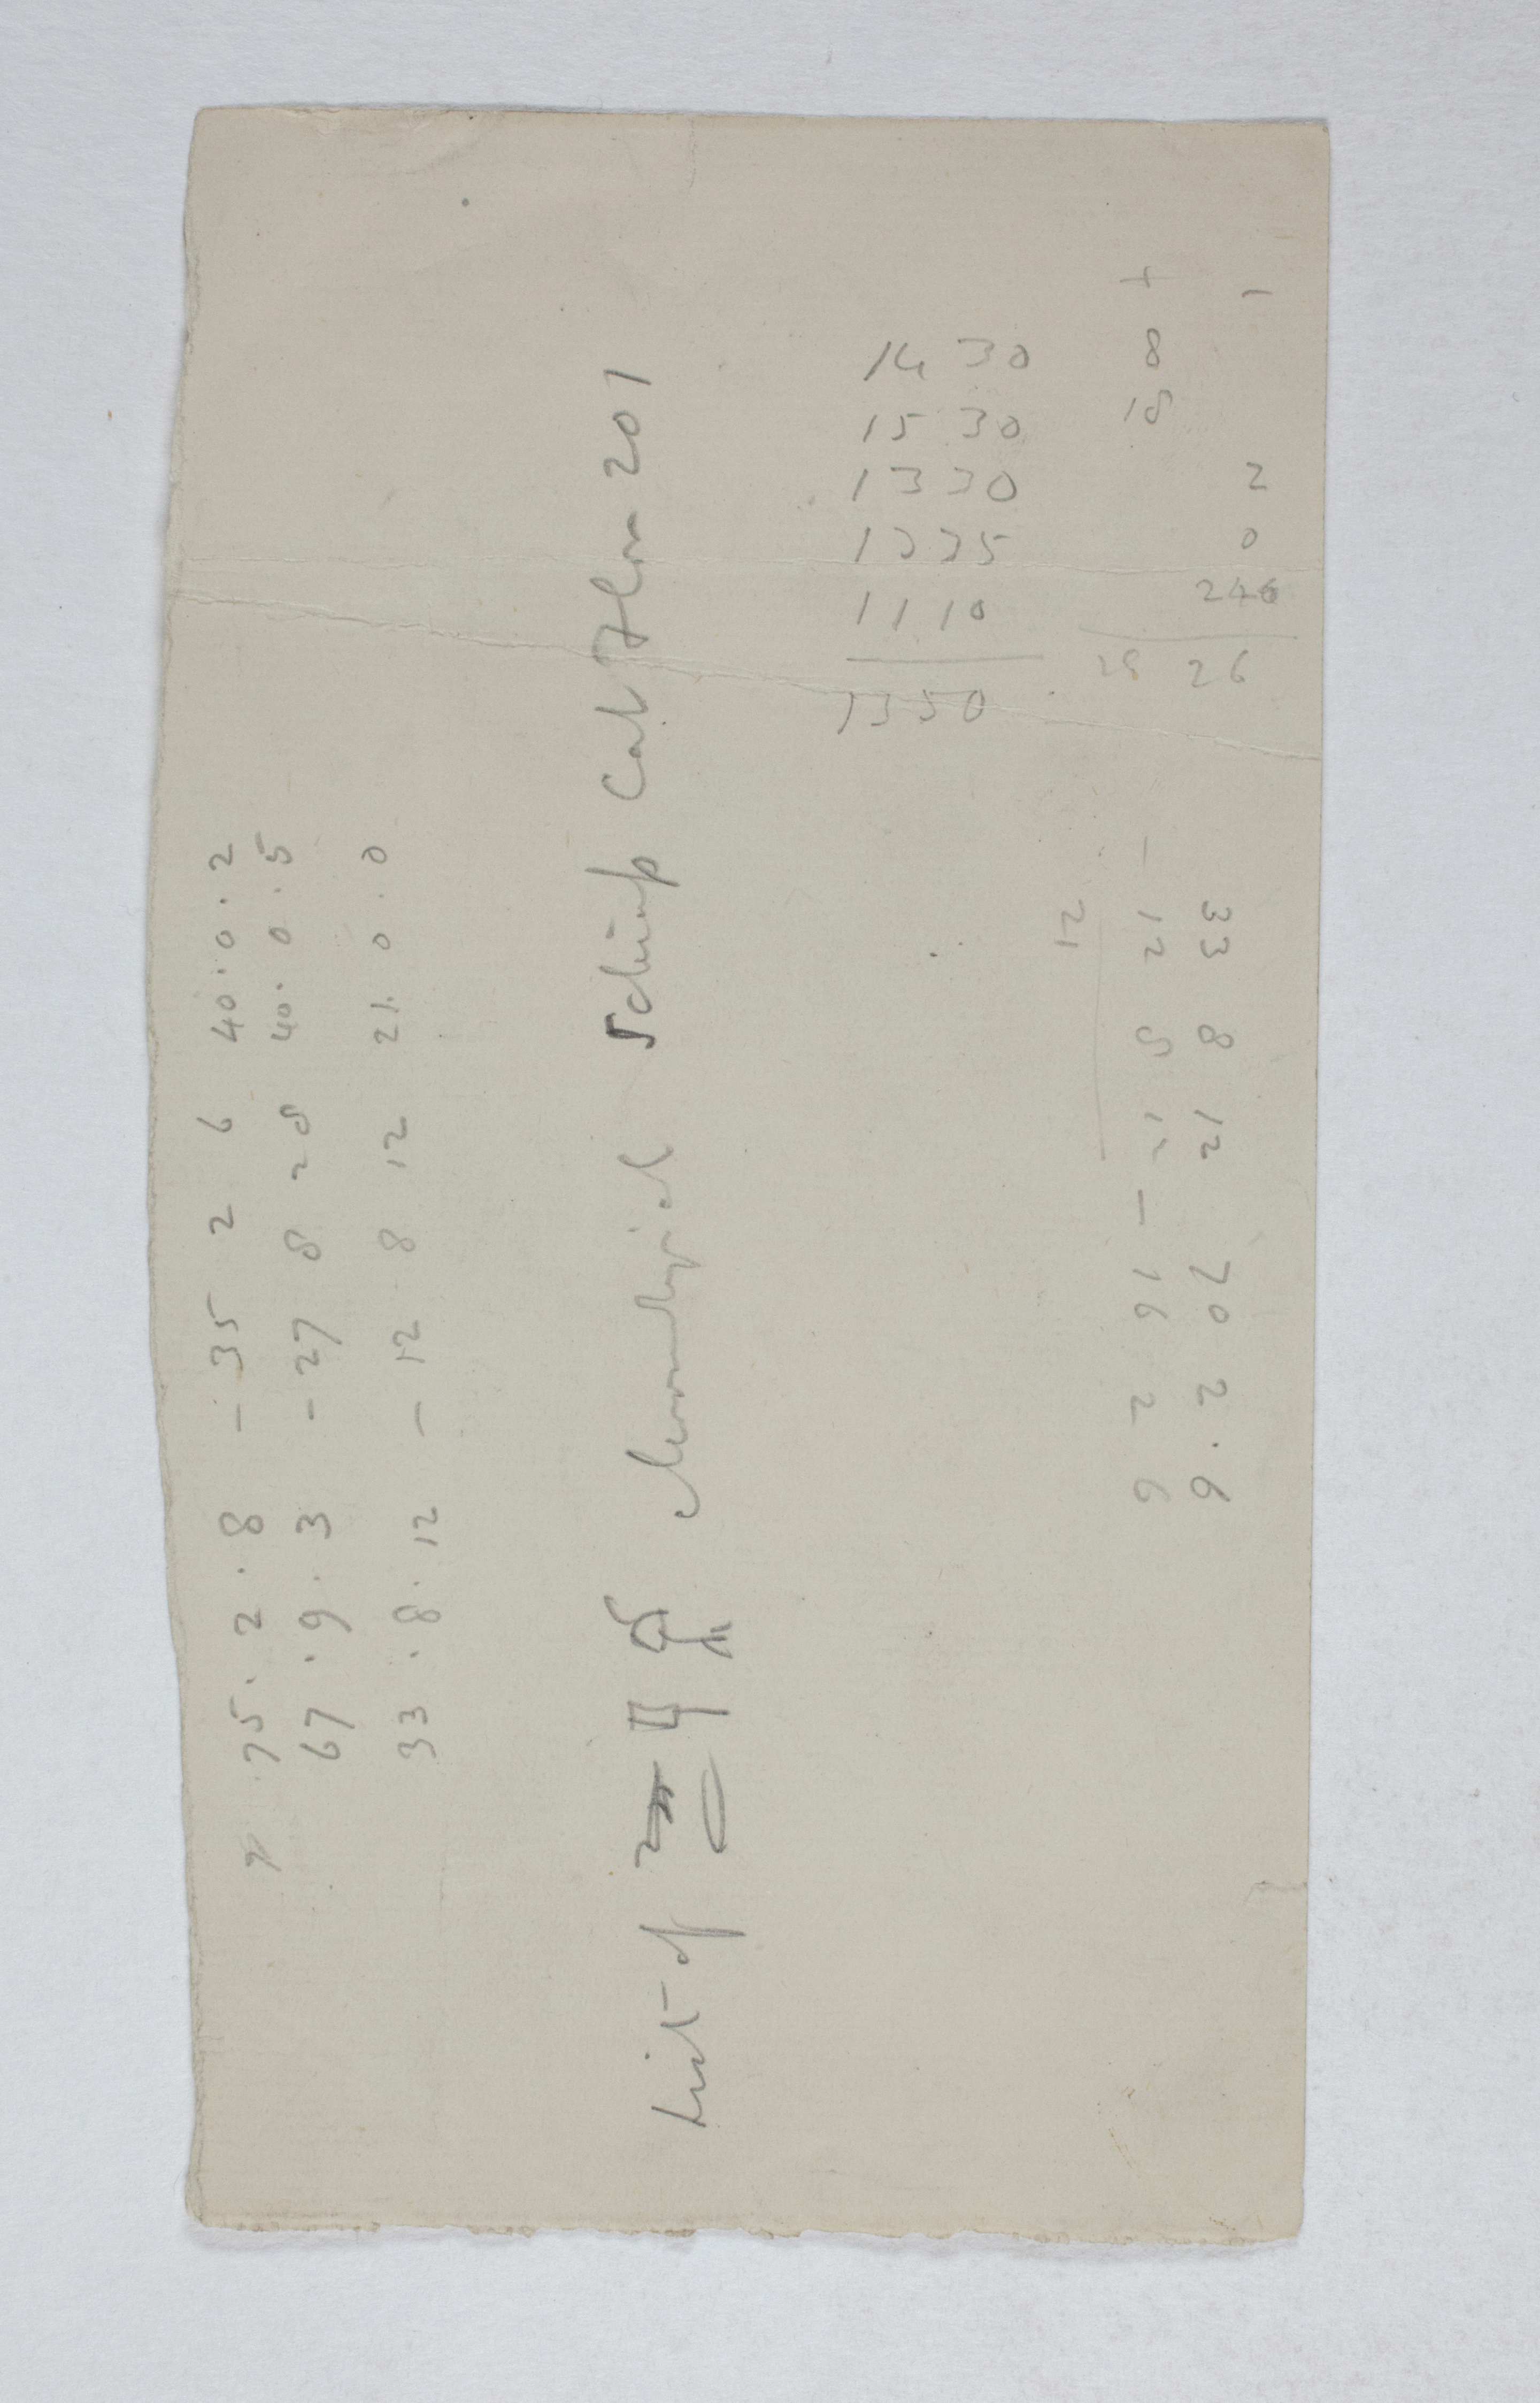 75 . 2 . 8 - 35 2 6 40 . 0 . 2
67 . 9 . 3 - 27 8 28 40 . 0 . 5
33 . 8 . 12 - 12 8 12 21 . 0 . 0
List of chronological Schiap Cat Flor 201
14 30
15 30
13 30
1335
11 10
1350
+ 1
8
18
2
0
246
28 26
33 8 12 70 2 . 6
- 12 8 12 - 16 2 6
21